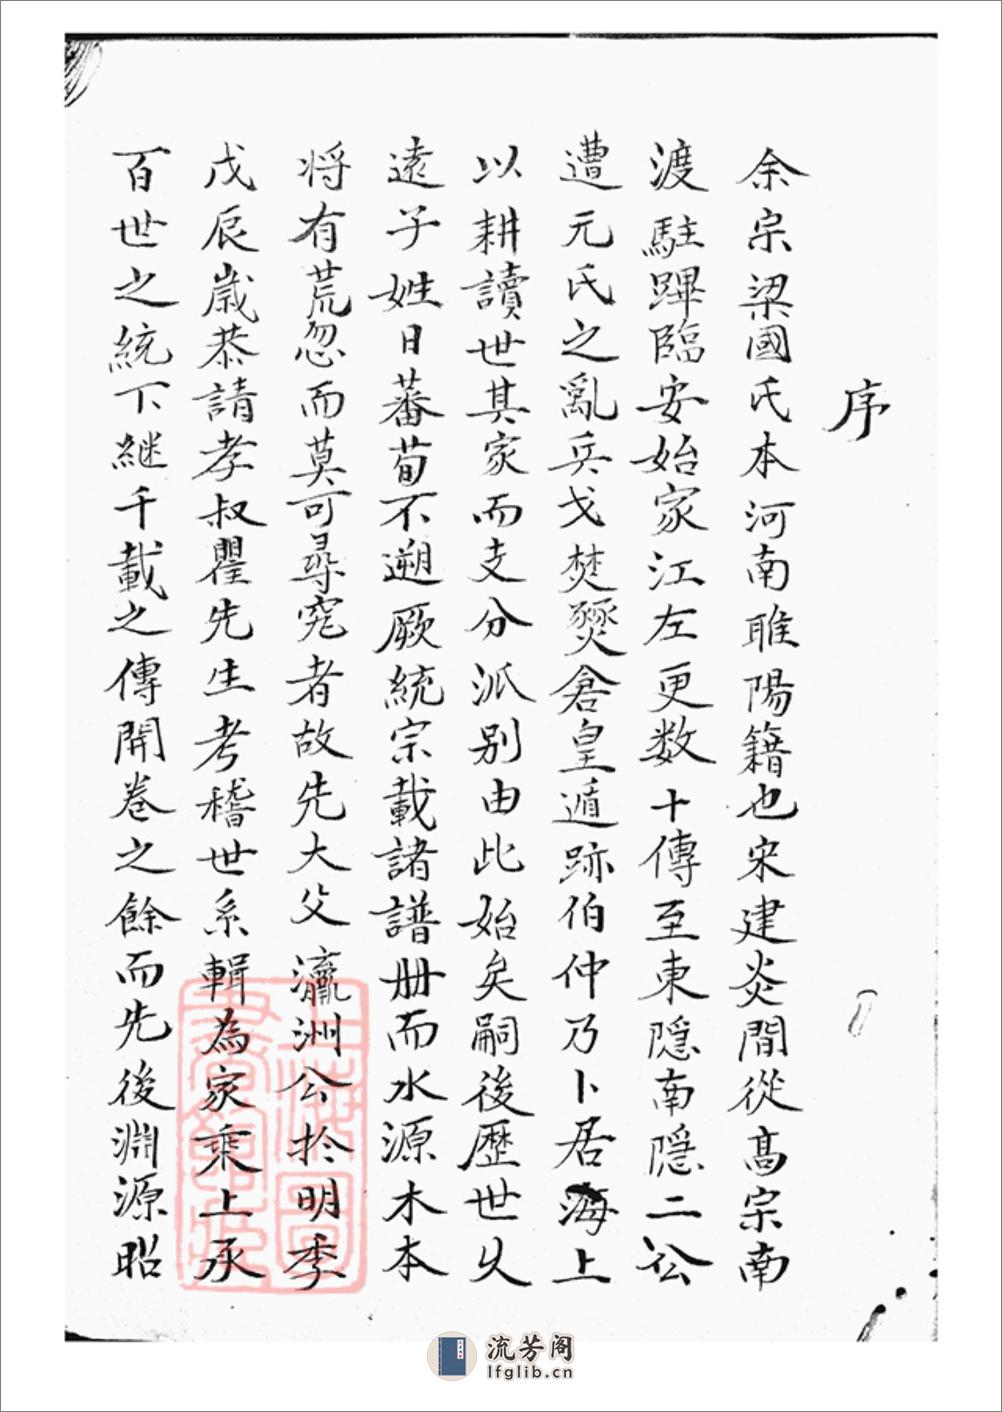 序
余宗梁國氏本河南睢陽籍也宋建炎間從高宗南
渡駐蹕臨安始家江左更数十傳至東隱南隱二公
遭元氏之亂兵戈焚燹倉皇遁跡伯仲乃卜居海上
以耕讀世其家而支分派别由此始矣嗣後歷世乆
逺子姓日蕃茍不遡厥統宗載諸譜册而水源木本
将有荒忽而莫可尋究者故先大父瀛洲公扵明季
戊辰歲恭請孝叔瞿先生考稽世系輯為家乗上承
百世之統下継千載之傳開卷之餘而先後淵源昭
上海圖書館藏
流芳阁
lfglib.cn